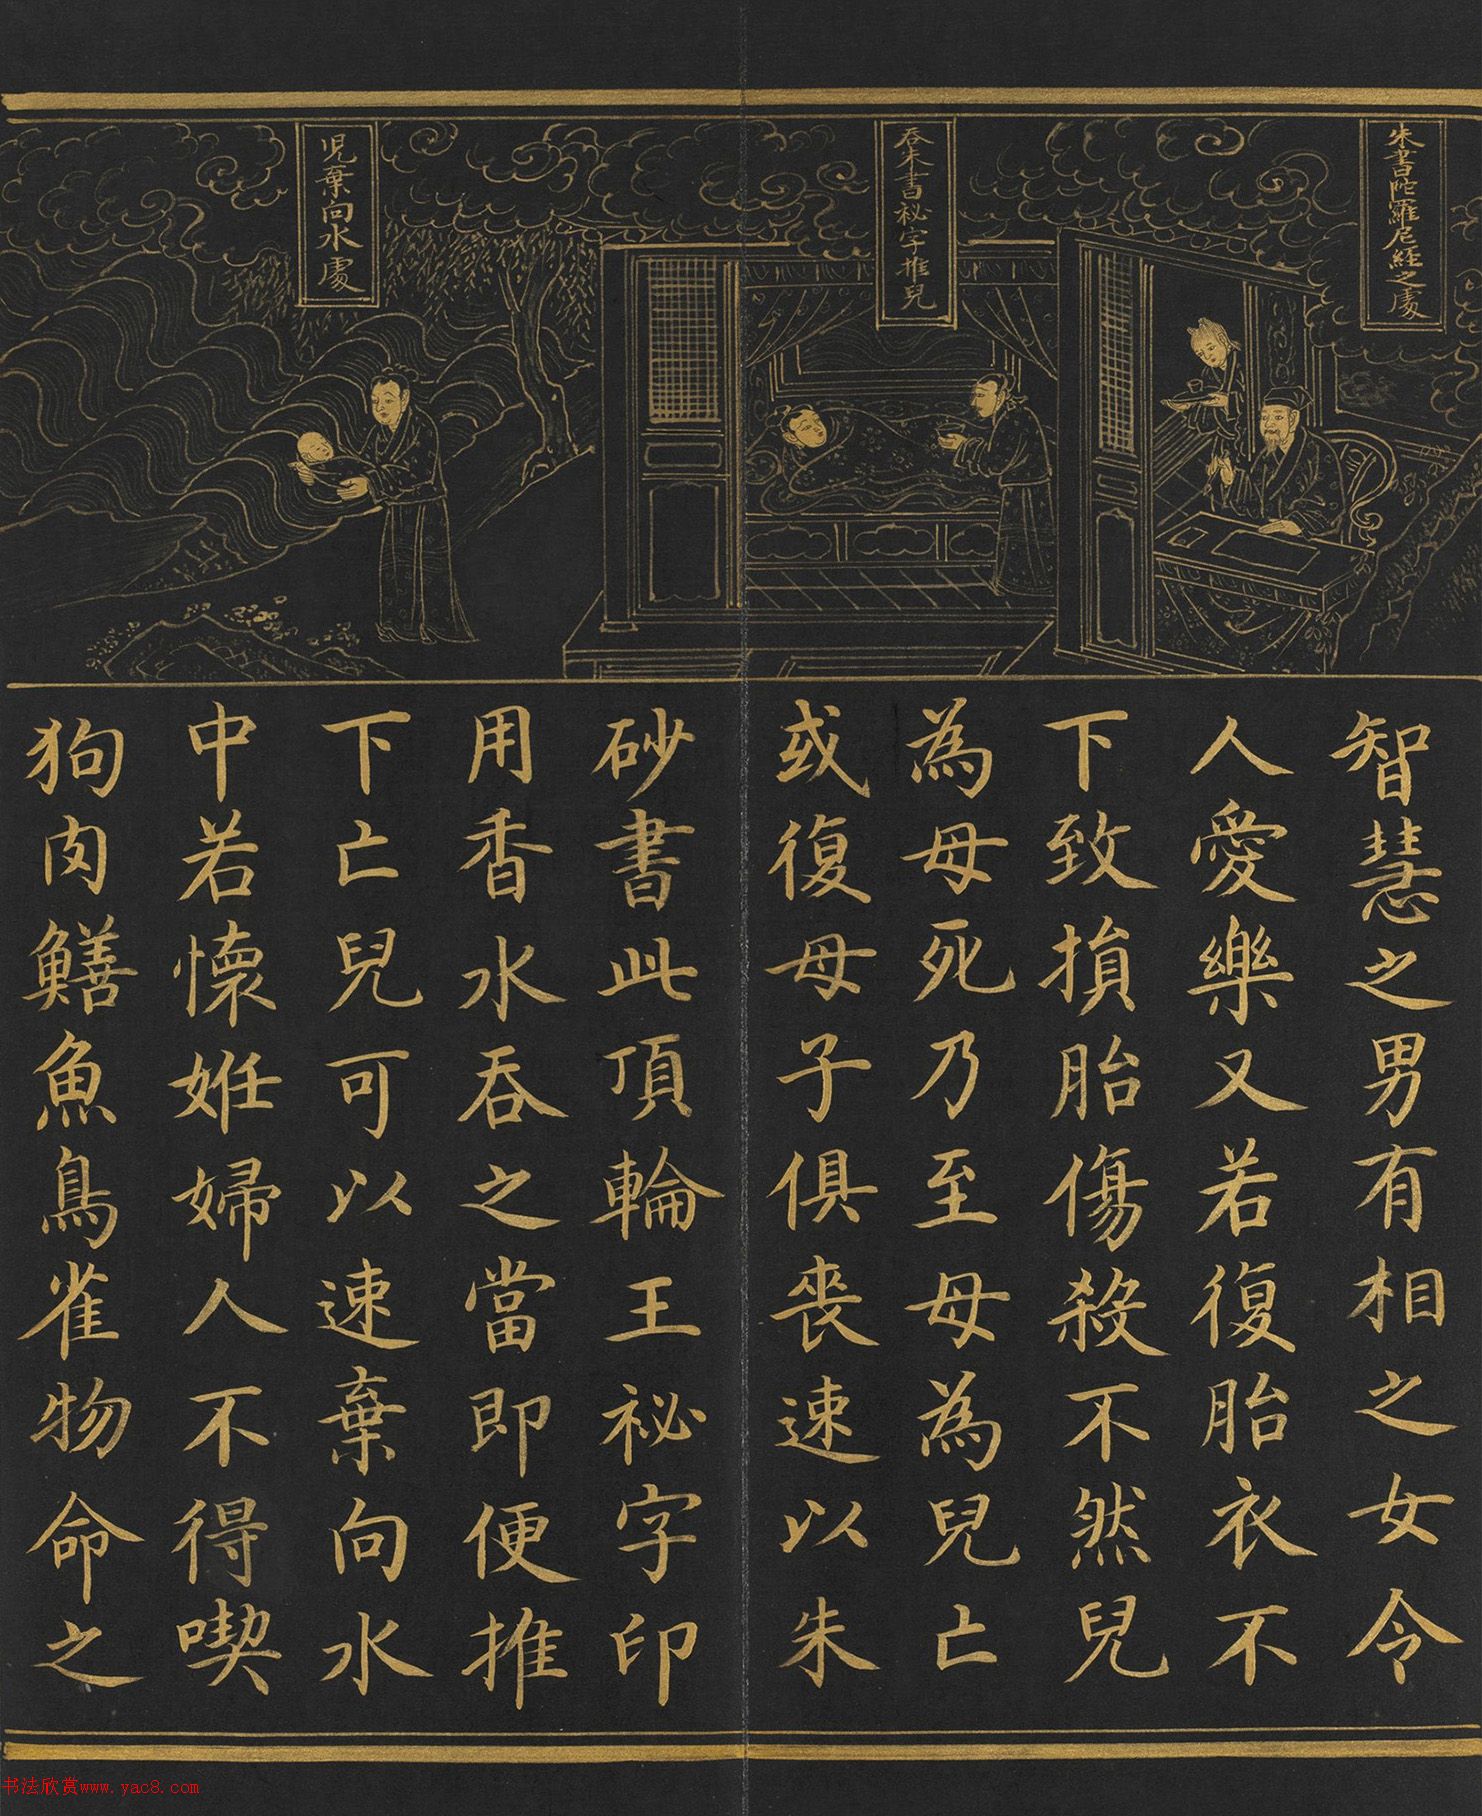 朱書陀羅尼経之處
吞朱書秘字推兒
児棄向水處
智慧之男有相之女令
人愛樂又若復胎衣不
下致損胎傷殺不然兒
為母死乃至母為兒亡
或復母子俱喪速以朱
砂書此頂輪王祕字印
用香水吞之當即便推
下亡兒可以速棄向水
中若懷姙婦人不得喫
狗肉鱔魚鳥雀物命之
书法欣赏www.yac8.com